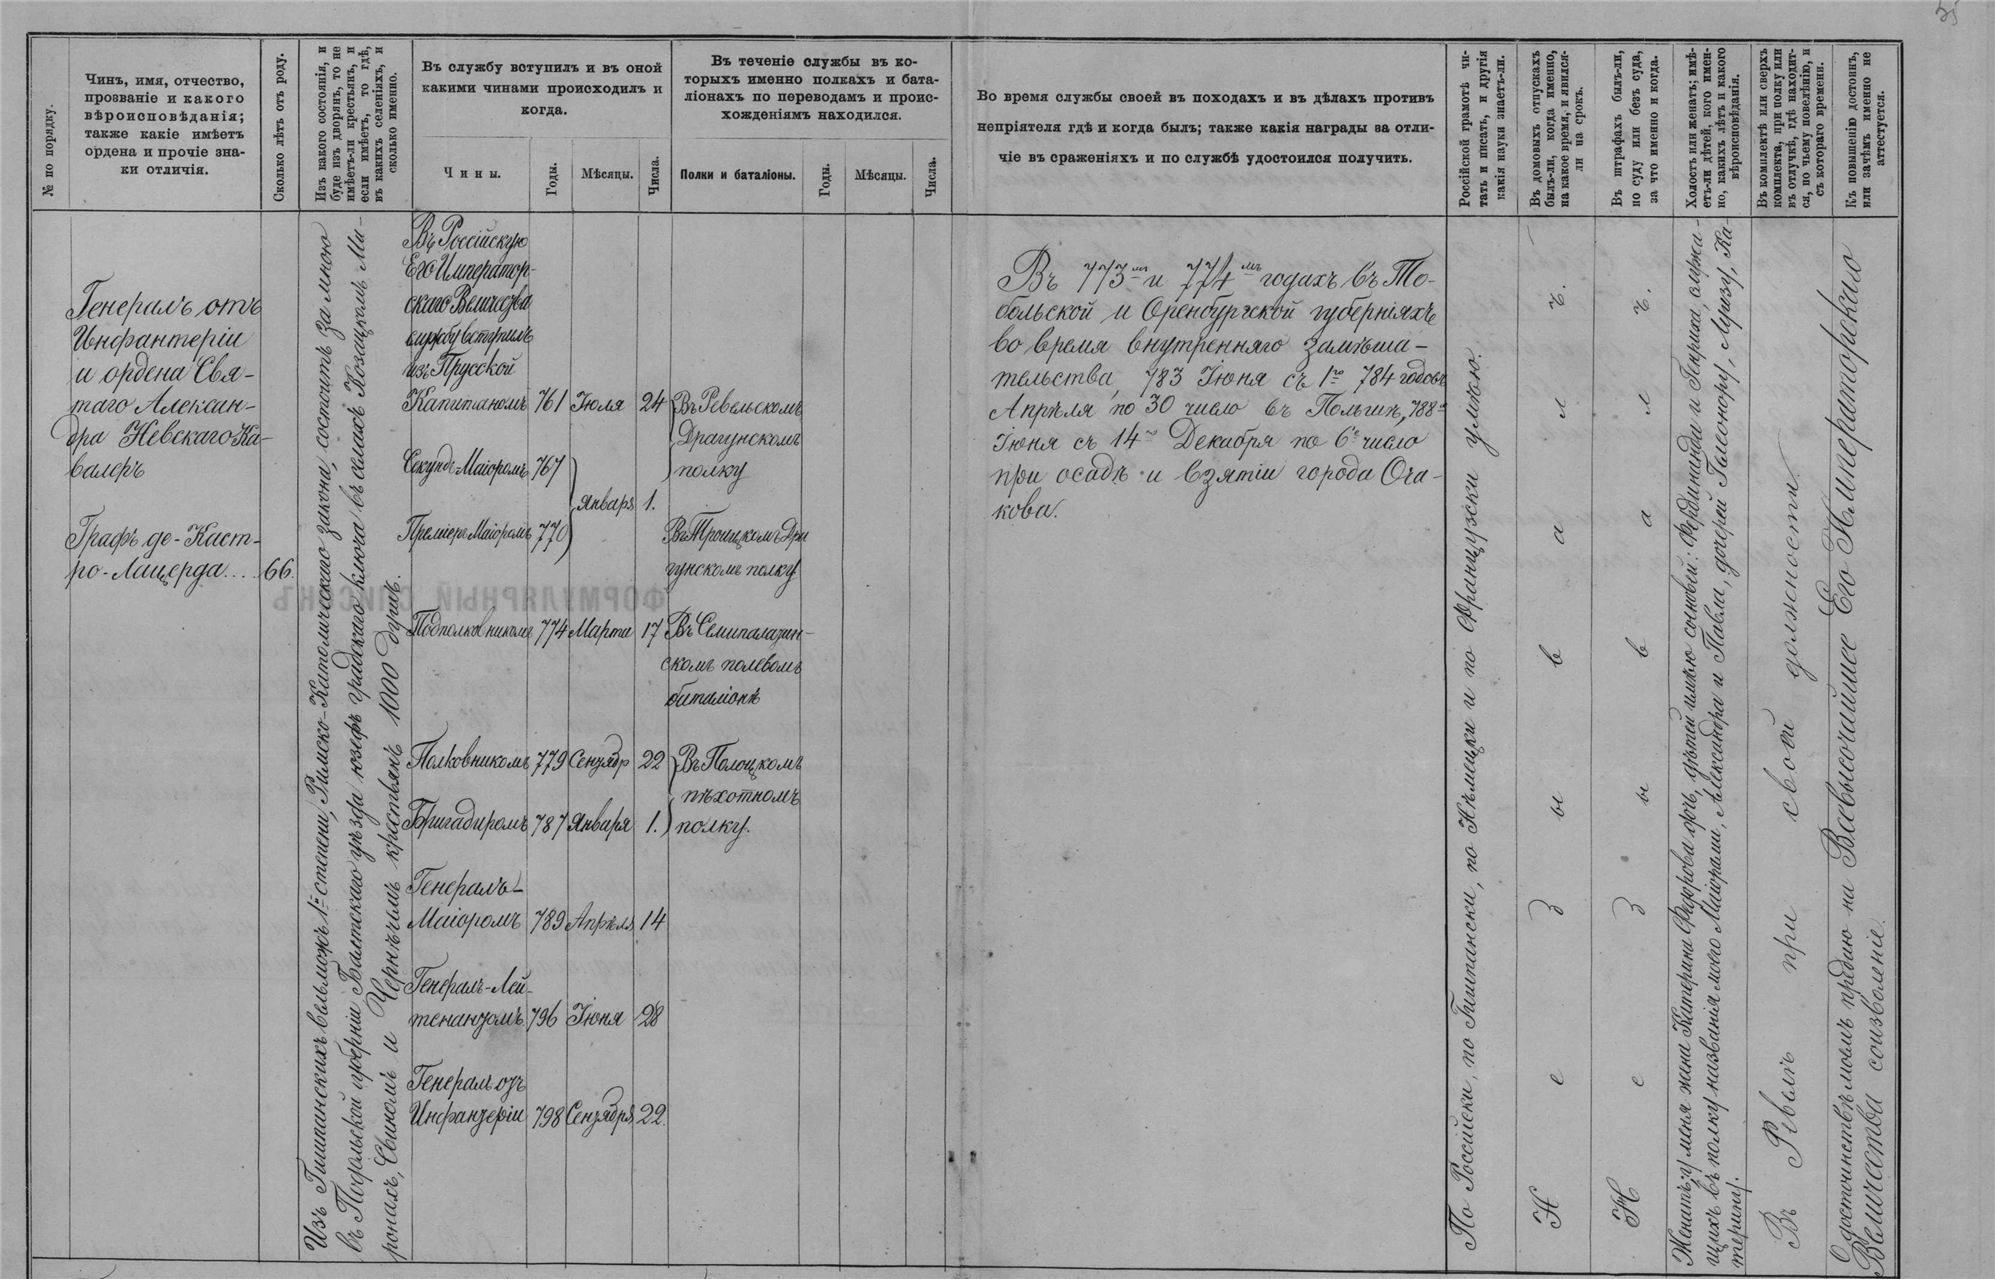 35
№ по порядку.
Чинъ, имя, отчество,
прозваніе и какого
вѣроисповѣданія;
также какіе имѣетъ
ордена и прочіе зна-
ки отличія.
Сколько лѣтъ отъ роду.
Изъ какого состоянія, и
буде изъ дворянъ, то не
имѣетъ-ли крестьянъ, и
если имѣетъ, то гдѣ,
въ какихъ селеніяхъ, и
сколько именно.
Въ службу вступилъ и въ оной
какими чинами происходилъ и
когда.
Чины.
Годы.
Мѣсяцы.
Числа.
Въ теченіе службы въ ко-
торыхъ именно полкахъ и бата-
ліонахъ по переводамъ и проис-
хожденіямъ находился.
Полки и баталіоны.
Годы.
Мѣсяцы.
Числа.
Во время службы своей въ походахъ и въ дѣлахъ противъ
непріятеля гдѣ и когда былъ; также какія награды за отли-
чіе въ сраженіяхъ и по службѣ удостоился получить.
Россійской грамотѣ чи-
тать и писать, и другія
какія науки знаетъ-ли.
Въ домовыхъ отпускахъ
былъ-ли, когда именно,
на какое время, и явился-
ли на срокъ.
Въ штрафахъ былъ-ли,
по суду или безъ суда,
за что именно и когда.
Холостъ или женатъ; имѣ-
етъ-ли дѣтей, кого имен-
но, какихъ лѣтъ и какого
вѣроисповѣданія.
Въ комплектѣ или сверхъ
комплекта, при полку или
въ отлучкѣ, гдѣ находит-
ся, по чьему повелѣнію, и
съ котораго времени.
Къ повышенію достоинъ,
или зачѣмъ именно не
аттестуется.
Генералъ отъ
Инфантеріи
и ордена Свя-
таго Алексан-
дра Невскаго Ка-
валеръ
Графъ де-Каст-
ро-Лацерда.... 66.
Изъ Гишпанскихъ вельможъ 1й степени, Римско-Католическаго закона, состоитъ за мною
въ Подольской губерніи Балтскаго уѣзда юзефъ градскаго ключа въ селахъ Козацкомъ Ми-
ронахъ, Свиномъ и Чернечьемъ крестьянъ 1000 душъ.
Въ Россійскую
Его Император-
скаго Величества
службу вступилъ
изъ Прусской
Капитаномъ 761 Іюля 24 Въ Ревельскомъ
Драгунскомъ
Секундъ-Маіоромъ 767 полку
Января 1.
Премьеръ Маіоромъ 770 Въ Троицкомъ Дра
гунскомъ полку
Подполковникомъ 774 Марта 17 Въ Семипалатин-
скомъ полевомъ
баталіонѣ
Полковникомъ 779 Сентябр 22 Въ Полоцкомъ
пѣхотномъ
Бригадиромъ 787 Января 1. полку.
Генералъ-
Маіоромъ 789 Апрѣля 14
Генералъ-Лей-
тенантомъ 796 Іюня 28
Генералъ отъ
Инфантеріи 798 Сентября 22.
Въ 773мъ и 774мъ годахъ въ То-
больской и Оренбургской губерніяхъ
во время внутренняго замѣша-
тельства, 783 Іюня съ 1го 784 годовъ
Апрѣля по 30 число въ Польшѣ, 788го
Іюня съ 14го Декабря по 6е число
при осадѣ и взятіи города Оча-
кова.
По Россійски, по Гишпански, по Нѣмецки и по Французски умѣю.
Не зывалъ.
Не зывалъ.
Женатъ: у меня жена Катерина Федорова дочь, дѣтей имѣю сыновей: Фердинанда и Генриха, служа-
щихъ въ полку названія моего Маіорами, Александра и Павла, дочерей Елеонору, Луизу, Ка-
терину.
Въ Ревелѣ при своей должности.
О достоинствѣ моемъ предаю на Всевысочайшее Его Императорскаго
Величества соизволеніе.
ФОРМУЛЯРНЫЙ СПИСОКЪ